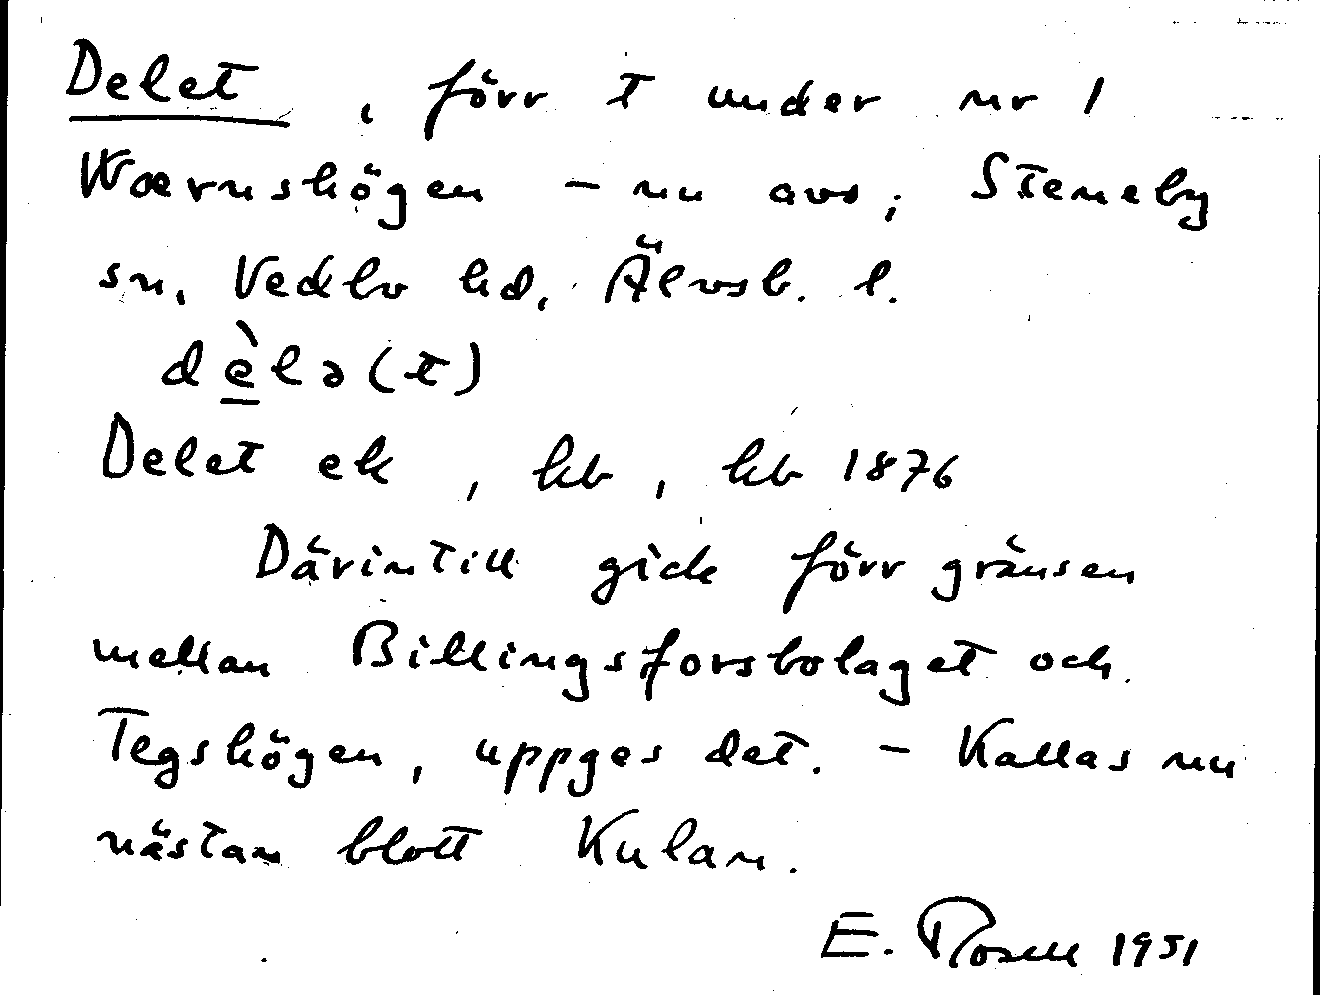 Delet, förr t under nr 1
Wærnshögen - nu avs; Steneby
sn, Vedbo hd, Älvsb. l.
dèlə(t)
Delet ek, hb, kb 1876
Därintill gick förr gränsen
mellan Billingsforsbolaget och
Tegshögen, uppges det. - Kallas nu
nästan blott Kulan.
E. Rosell 1951